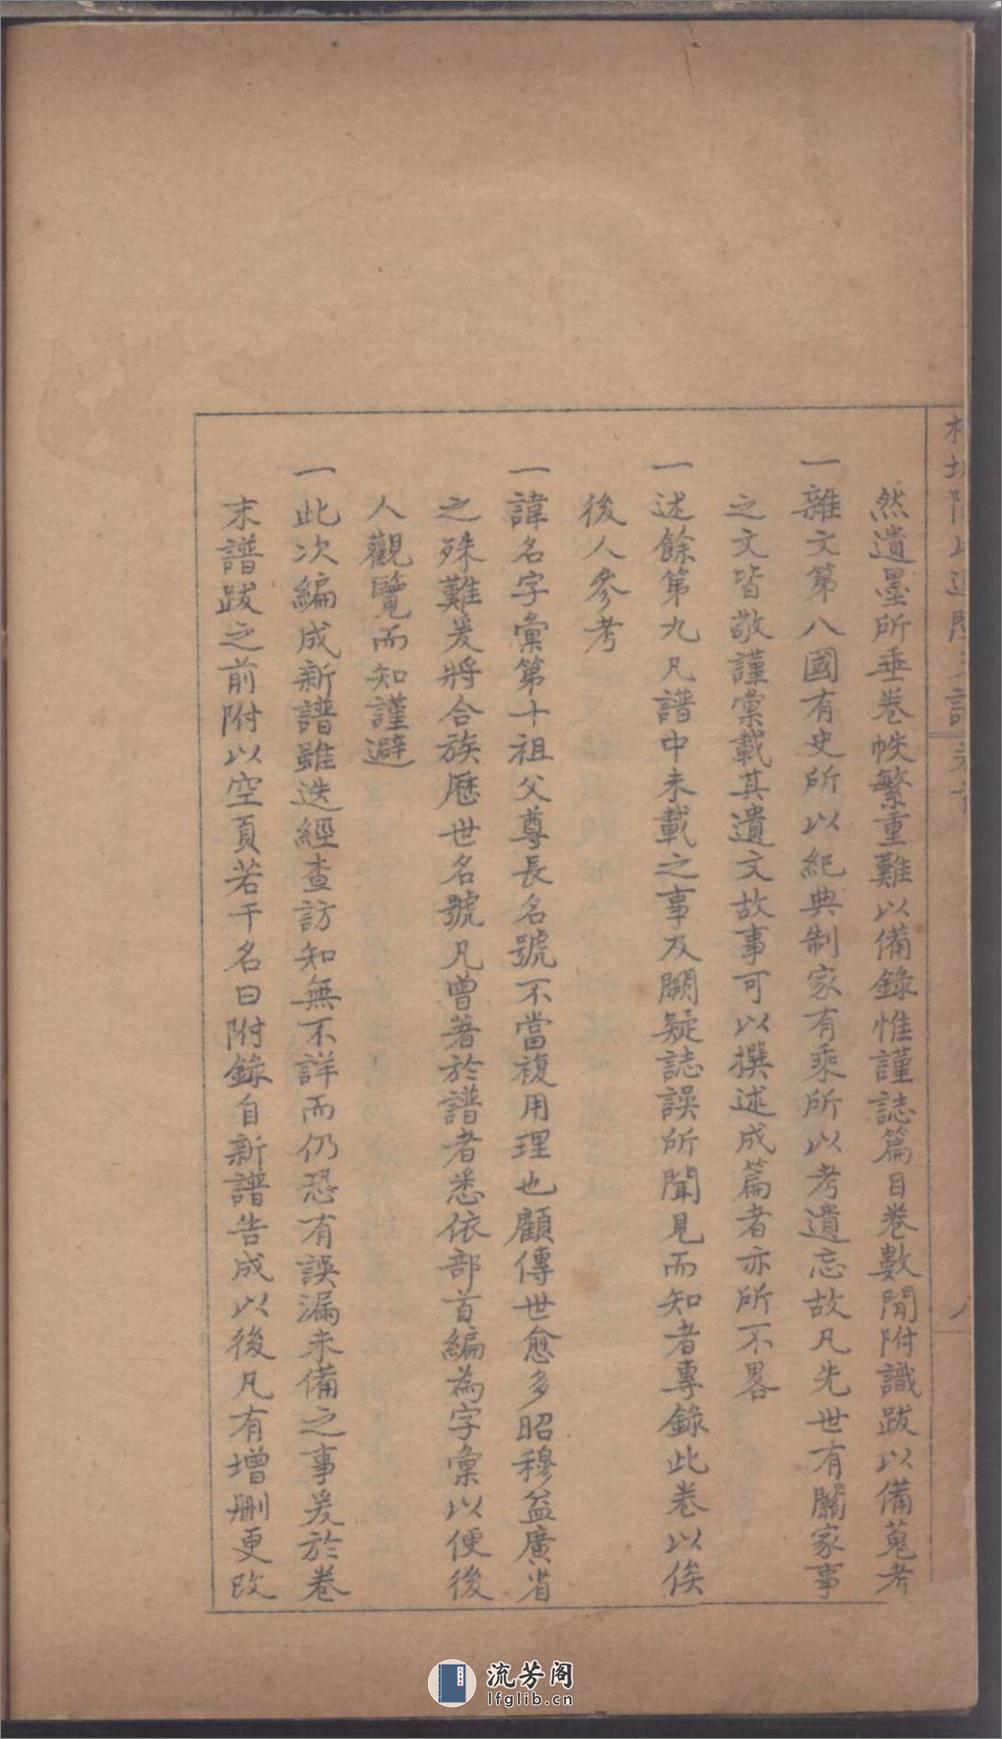 然遺墨所垂卷帙繁重難以備錄惟謹誌篇目卷數間附識跋以備蒐考
一雜文第八國有史所以紀典制家有乘所以考遺忘故凡先世有關家事
之文皆敬謹彙載其遺文故事可以撰述成篇者亦所不畧
一述餘第九凡譜中未載之事及闕疑誌誤所聞見而知者專錄此卷以俟
後人參考
一諱名字彙第十祖父尊長名號不當複用理也顧傳世愈多昭穆益廣省
之殊難爰將合族歷世名號凡曾著於譜者悉依部首編為字彙以便後
人觀覽而知謹避
一此次編成新譜雖迭經查訪知無不詳而仍恐有誤漏未備之事爰於卷
末譜跋之前附以空頁若干名曰附錄自新譜告成以後凡有增刪更改
流芳阁
lfglib.cn